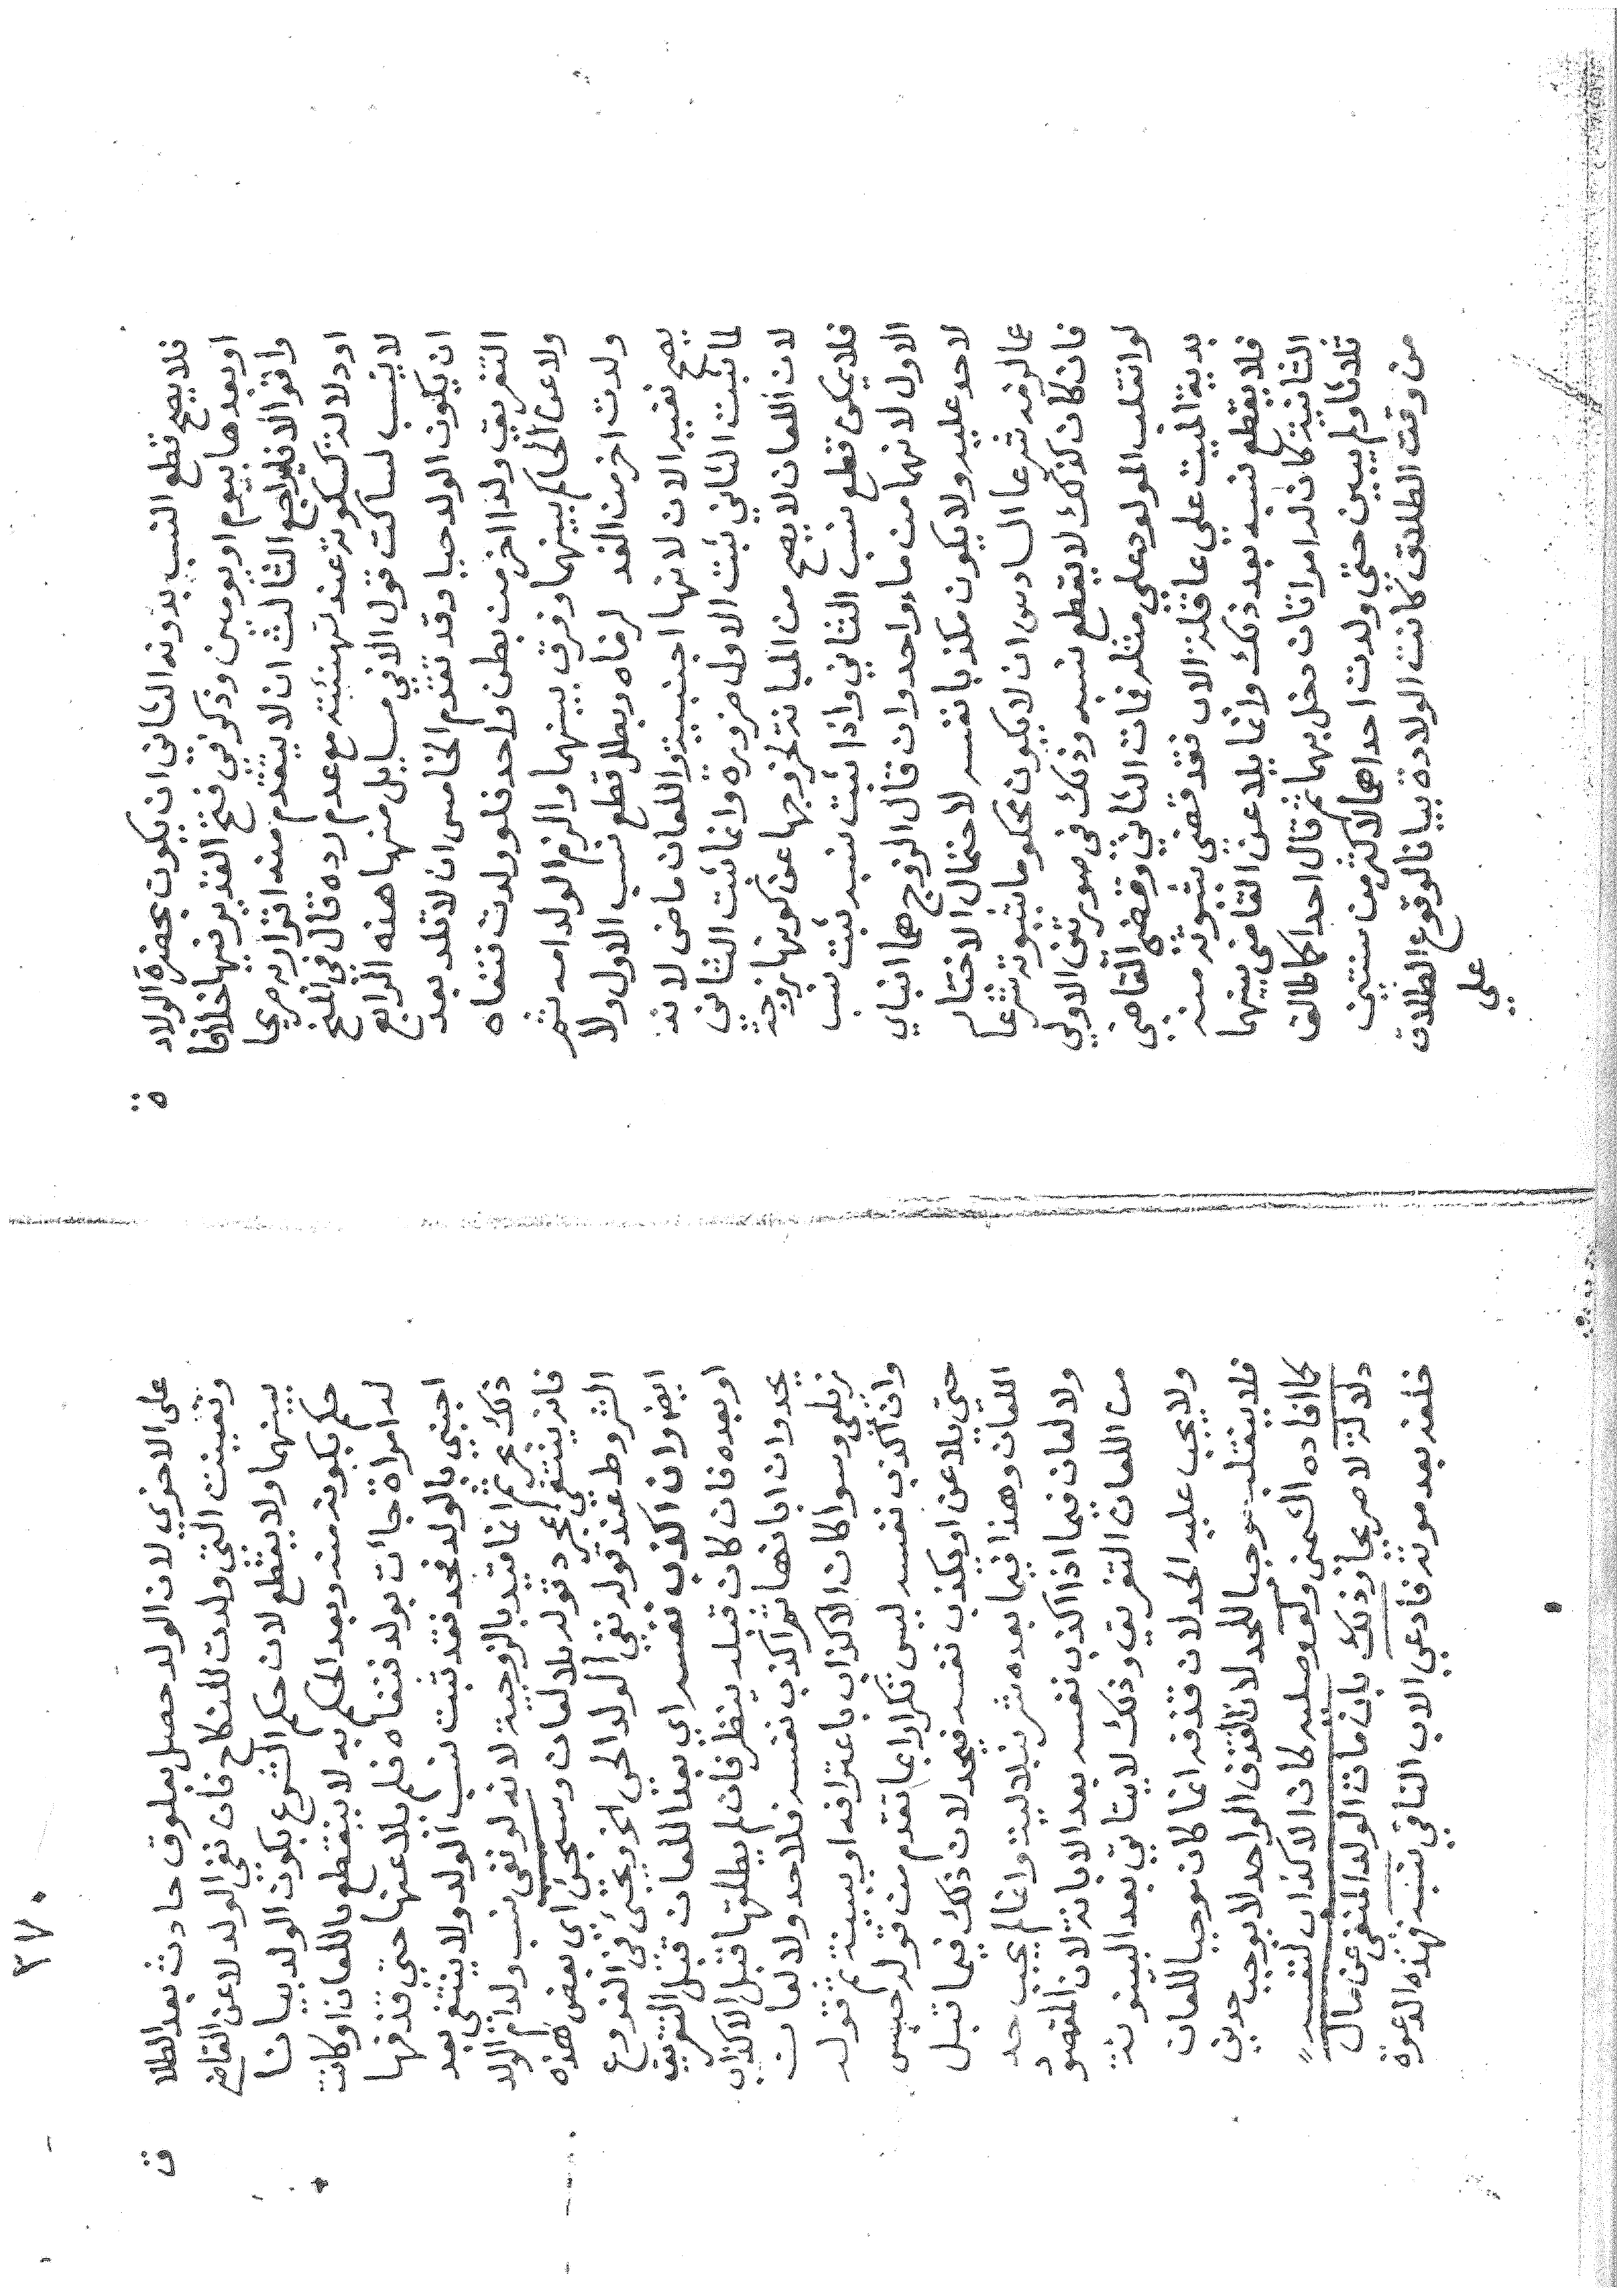 فلا يصح قطع النسب بدونه الثاني ان يكون بحضرة الولاد ة
او بعدها بيوم او يومين وذكر في فتح القدير فيها خلافا
وا الثالث ان لا يتقدم منه اقرار به صريحا
او دلالة كسكوته عند تهنئته مع عدم رده قال في الفتح
لا ينسب لساكت قول الا في مسايل منها هذه الرابع
ان يكون الولد حيا وقد تقدم الخامس ان لا تلد بعد
التفريق ولدا اخر من بطن واحد فلو ولدت فنفاه
ولاعن الحاكم بينهما وفرق بينهما والزم الولد امه ثم
ولدت اخر من الغد لزماه وبطل قطع نسب الاول ولا
يصح نفيه الان لانها اجنبية واللعان ماض لانه
لما ثبت الثاني ثبت الاول ضرورة وانما ثبت الثاني
لان اللعان لا يصح من المبانة لخروجها عن كونها زوجة
فلا يمكن قطع نسب الثاني واذا ثبت نسبه ثبت نسب
الاول لانهما من ماء واحد وان قال الزوج هما ابناي
لا حد عليه ولا يكون مكذبا نفسه لاحتمال الاخبار
عما لزمه شرعا السادس ان لا يكون محكوما بثبوته شرعا
فان كان كذلك لا يقطع نسبه وذلك في صورتين الاولى
لو انقلب المولود على مثله فمات الثاني وقضى القاضي
بدية الميت علي عاقلة الاب فقد قضى بثبوته منه
فلا يقطع نسبه بعد ذلك وانما يلاعن القاضي بينهما
الثانية كان له امراتان دخل بهما ثم قال احداكما طالق
ثلاثا ولم يبين حتى ولدت احداهما لاكثر من سنتين
من وقت الطلاق كانت الولادة بيانا لوقوع الطلاق
علي
٢٧٠
على الاخرى لان الولد حصل بعلوق حادث بعد الطلا ق
وتعينت التي ولدت للنكاح فان نفى الولد لاعن القاضي
بينهما ولا يقطع لان حكم الشرع بكون الولد بيانا
حكم بكونه منه وبعد الحكم به لا ينقطع باللعان او كانت
له امراة جاءت بولد فنفاه فلم يلاعنها حتى قذفها
اجنبي بالولد فحد فقد ثبت نسب الولد ولا ينتفي بعد
ذلك ثم انما قيد بالزوجية لانه لو نفى نسب ولد ام الولد
فانه ينتفي بمجرد قوله بلا لعان وسيجئ اي بعض هذه
الشروط عند قوله نفي الولد الحي الخ ويجئ في الفروع
ايضا وان اكذب نفسه اي بعد اللعان قبل التفريق
او بعده فان كان قبله ينظر فان لم يطلقها قبل الاكذاب
يحد وان ابانها ثم اكذب نفسه فلا حد ولا لعان
زيلعي وسواء كان الاكذاب باعترافه او ببينة ثم قوله
وان اكذب نفسه ليس تكرارا بما تقدم من قوله حبس
حتى يلاعن او يكذب نفسه فيحد لان ذلك فيما قبل
اللعان وهذا فيما بعده شرنبلالية وانما لم يجب حد
ولا لعان فيما اذا اكذب نفسه بعد الابانة لان المقصود
من اللعان التفريق وذلك لا يتاتى بعد البينونة
ولا يجب عليه الحد لان قذفه انما كان موجبا للعان
فلا ينقلب موجبا للحد لان القذف الواحد لا يوجب حدين
كما افاده الشمني ولو وصليه كان الاكذاب لنفسه
دلالة لا صريحا وذلك بان مات الولد المنفى عن مال
خلفه بعد موته فادعي الاب النافي نسبه فهذه الدعوة